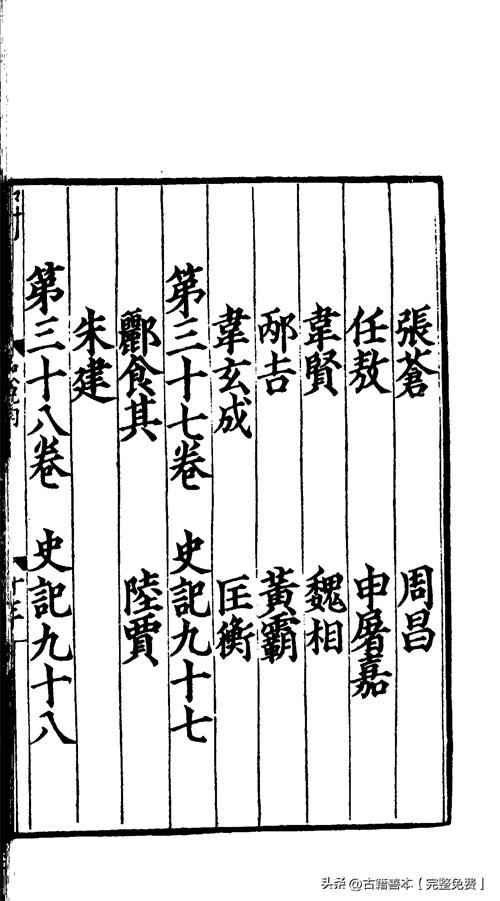 張蒼 周昌
任敖 申屠嘉
韋賢 魏相
邴吉 黃霸
韋玄成 匡衡
第三十七卷 史記九十七
酈食其 陸賈
朱建
第三十八卷 史記九十八
头条 @古籍善本【完整免费】